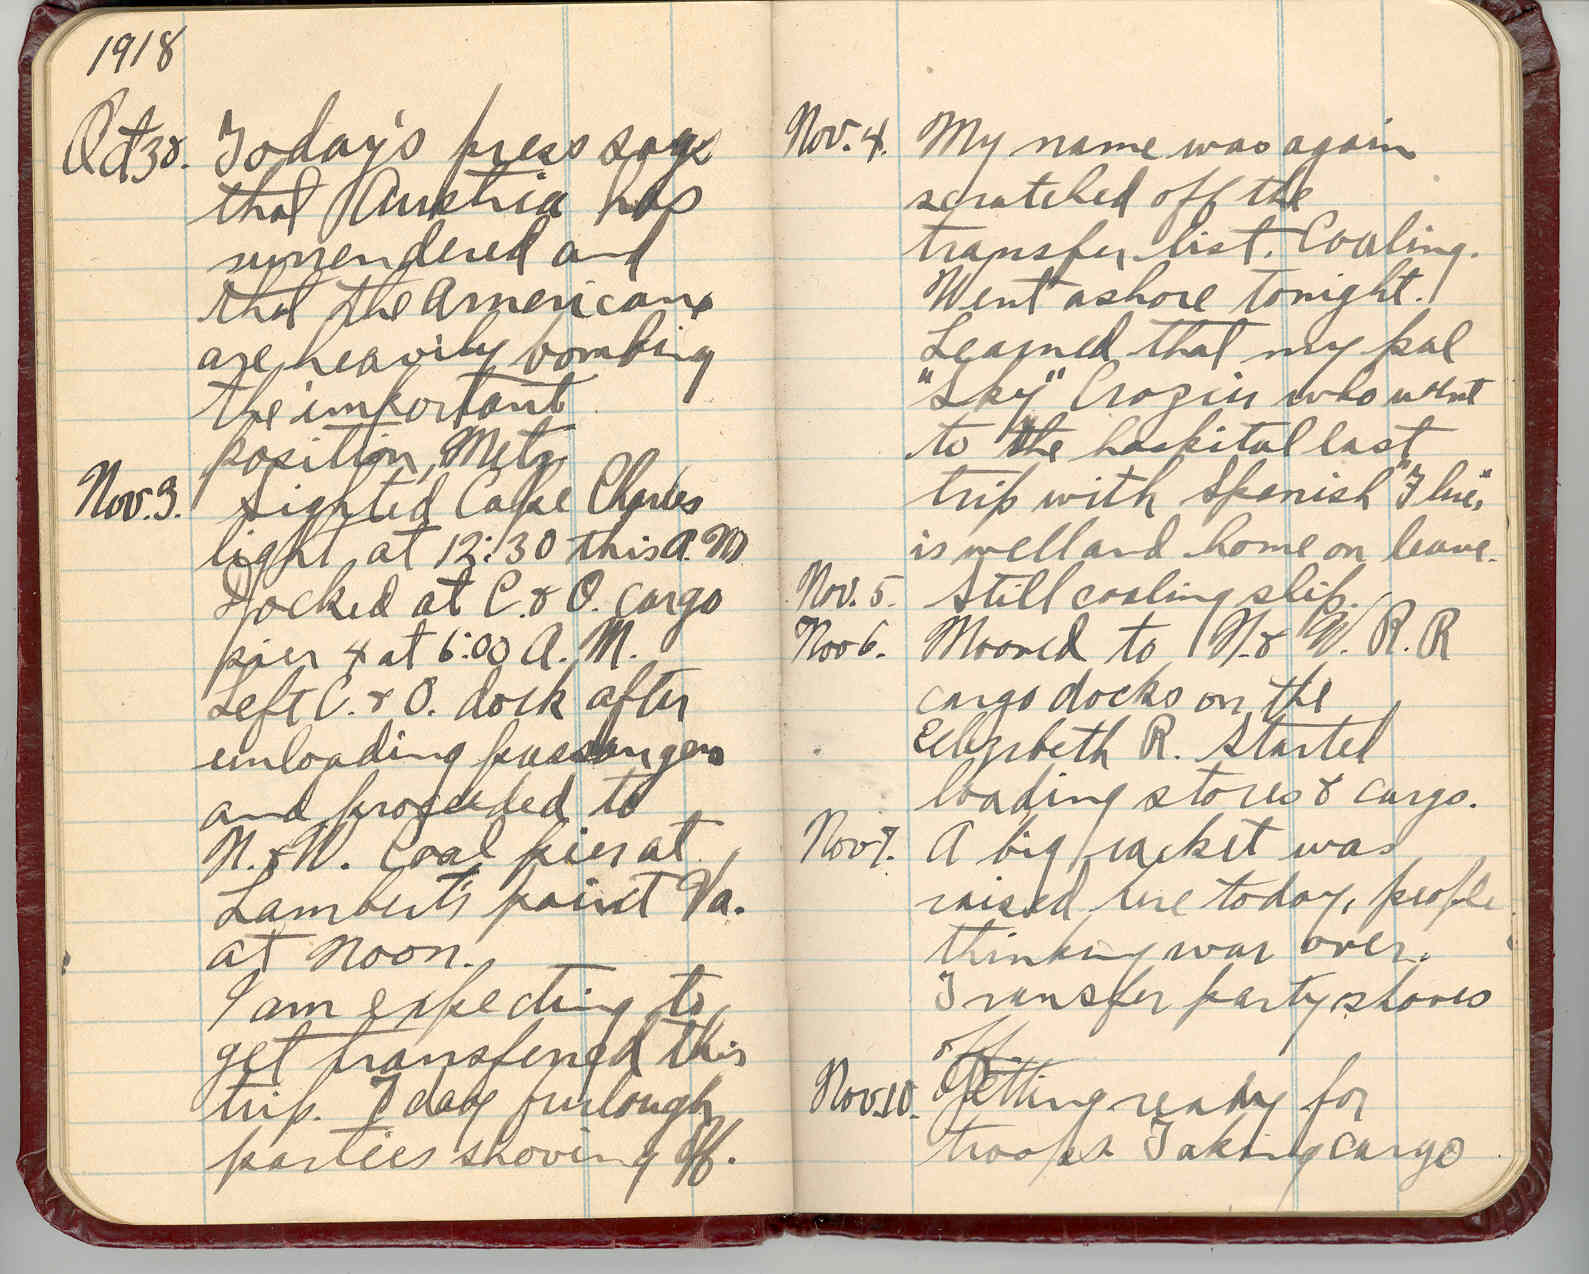 1918
Oct 30. Today's press says
that Austria has
surrendered and
that the Americans
are heavily bombing
the important
position, Metz.
Nov. 3. Sighted Cape Charles
light at 12:30 this A.M.
Docked at C. & O. cargo
pier 4 at 6:00 A. M.
Left C. & O. dock after
unloading passengers
and proceeded to
N. & W. Coal pier at
Lambert's point Va.
at Noon.
I am expecting to
get transferred this
trip. 7 day furlough
parties shoving off.
Nov. 4. My name was again
scratched off the
transfer list. Coaling.
Went ashore tonight.
Learned that my pal
"Sky" Crozier who went
to the hospital last
trip with Spanish "Flue",
is well and home on leave.
Nov. 5. Still coaling ship.
Nov 6. Mooved to N. & W. R. R
cargo docks on the
Elizabeth R. Started
loading stores & cargo.
Nov 7. A big racket was
raised here today, people
thinking war over.
Transfer party shoves
off.
Nov. 10. Getting ready for
troops. Taking cargo